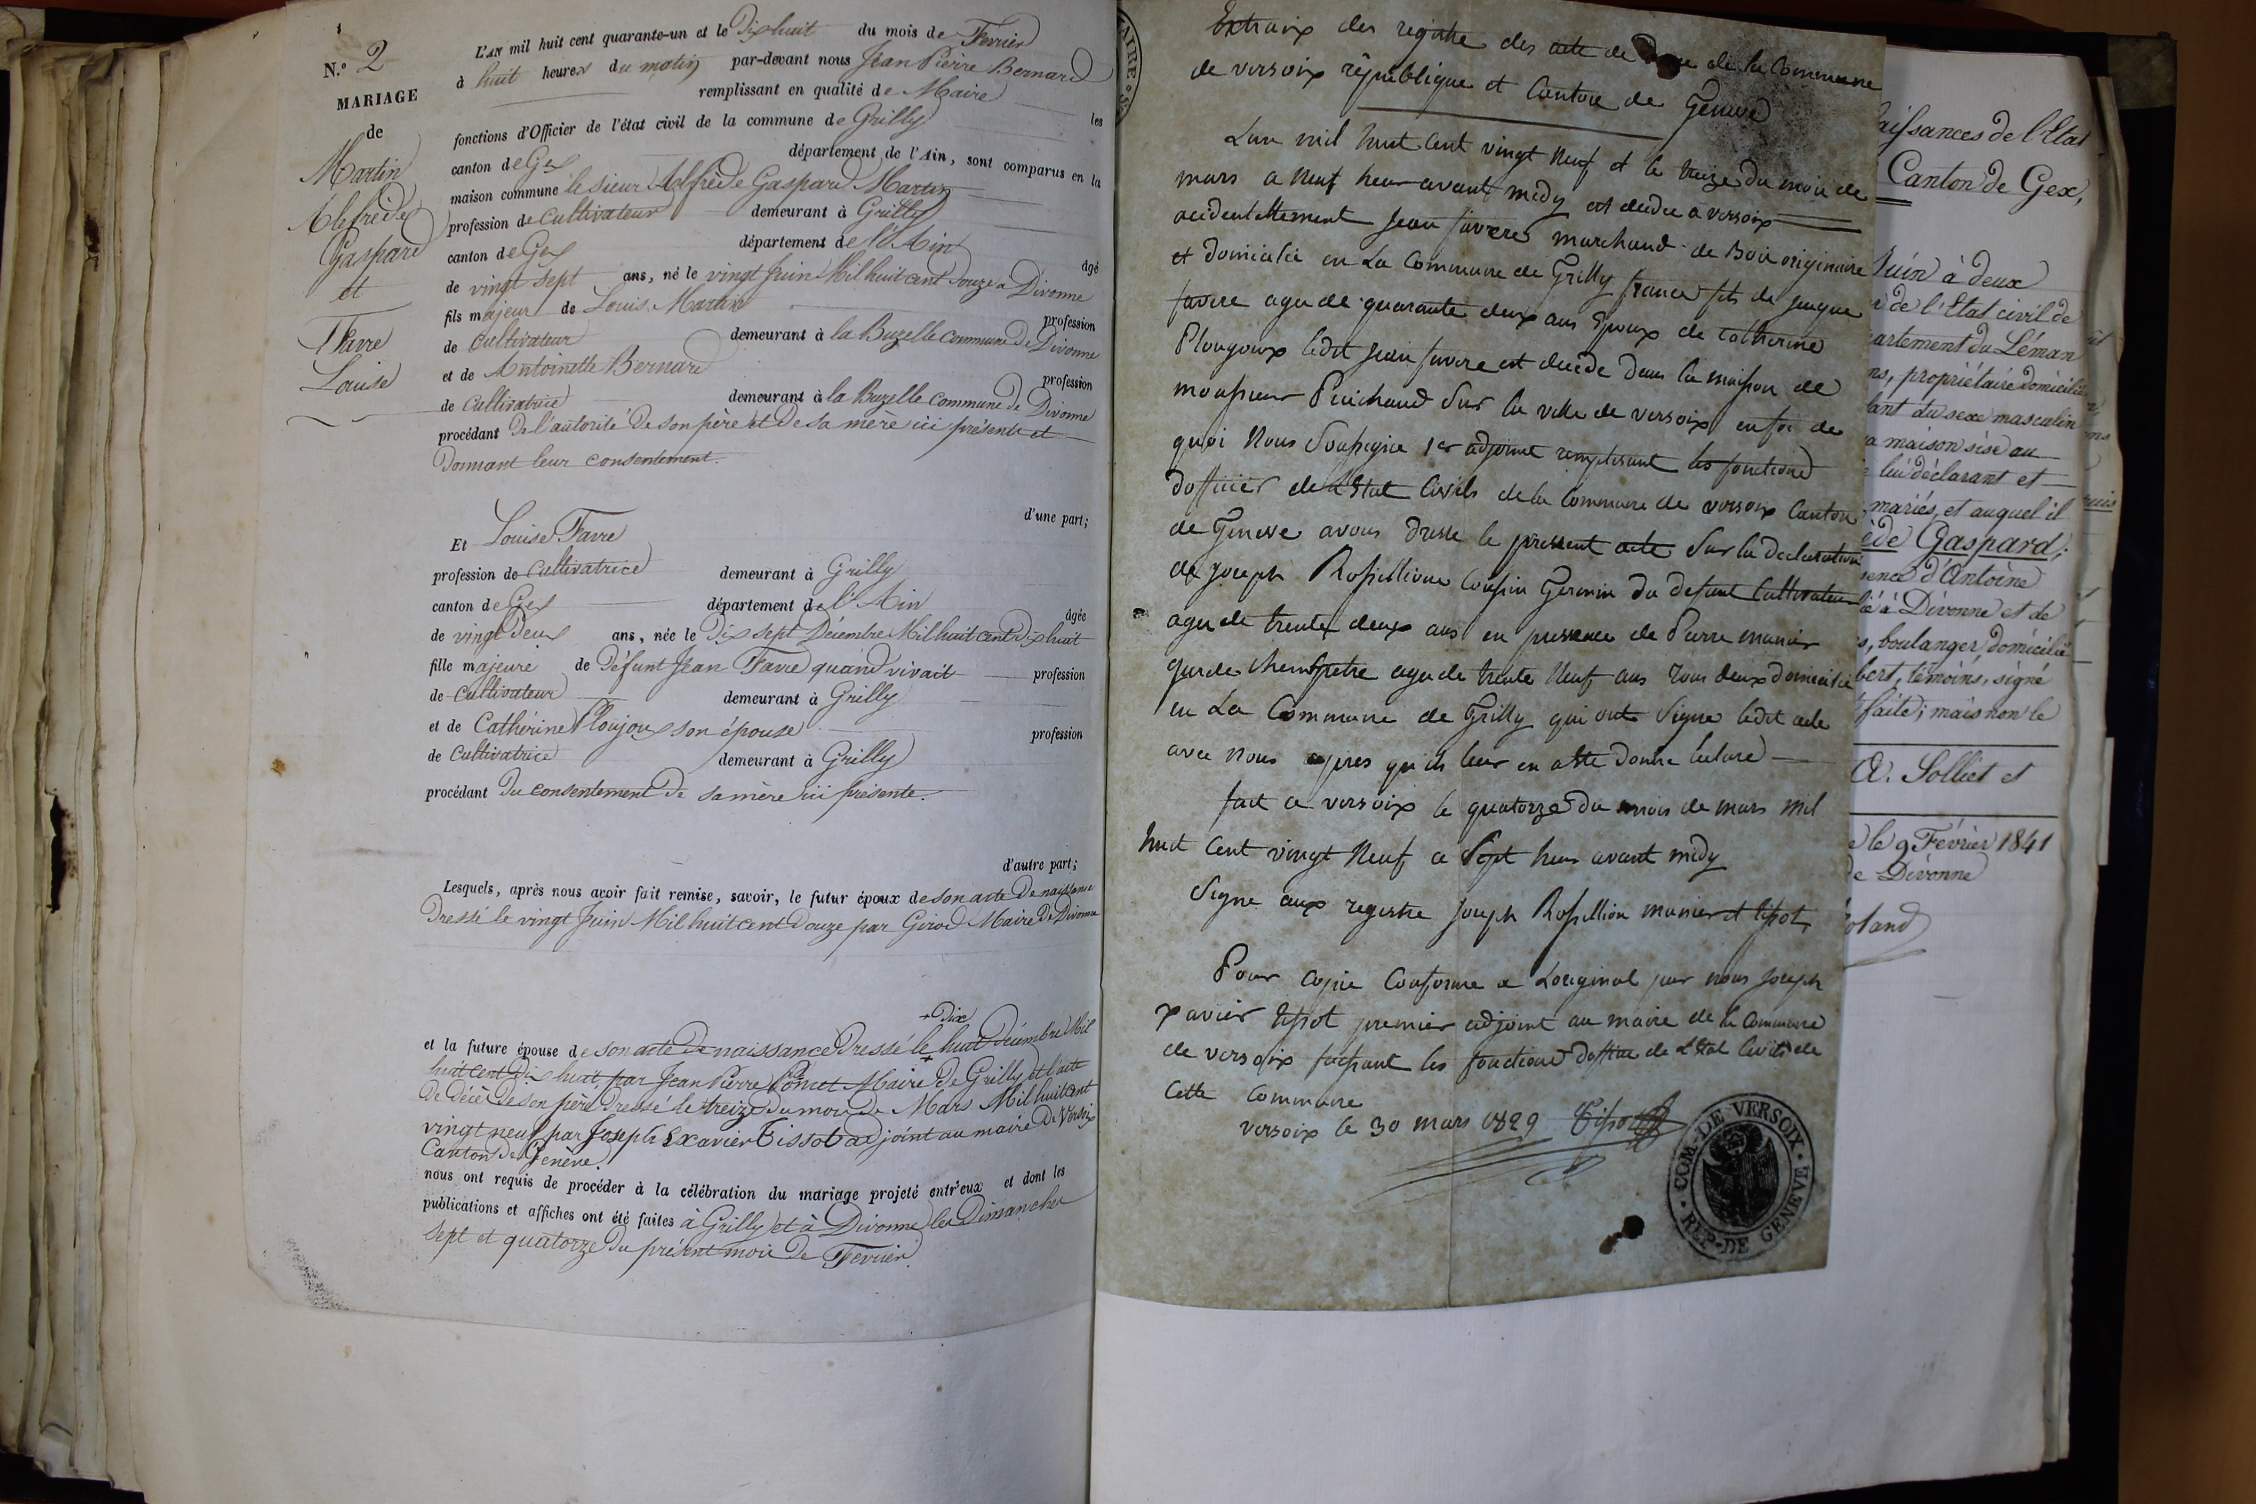 N.º 2
MARIAGE
de
Martin
Alefrède
Gaspard
et
Favre
Louise
L'AN mil huit cent quarante-un et le Dix huit du mois de Fevrier
à huit heures du matin par-devant nous Jean Pierre Bernard
remplissant en qualité de Maire les
fonctions d'Officier de l'état civil de la commune de Grilly
canton de Gex département de l'Ain, sont comparus en la
maison commune le sieur Alfrède Gaspard Martin
profession de Cultivateur demeurant à Grilly
canton de Gex département de l'Ain âgé
de vingt sept ans, né le vingt Juin Mil huit cent Douze a Divonne
fils majeur de Louis Martin profession
de Cultivateur demeurant à la Buzelle Commune de Divonne
et de Antoinette Bernard profession
de Cultivatrice demeurant à la Buzelle Commune de Divonne
procédant De l'autorité De son père et De sa mère ici présents et
Donnant leur consentement.
d'une part;
Et Louise Favre
profession de Cultivatrice demeurant à Grilly
canton de Gex département de l'Ain âgée
de vingt Deux ans, née le Dix sept Décembre Mil huit cent Dix huit
fille majeure de Défunt Jean Favre quand vivait profession
de Cultivateur demeurant à Grilly
et de Cathérine Ploujoux son épouse profession
de Cultivatrice demeurant à Grilly
procédant Du consentement De sa mère ici présente.
d'autre part;
Lesquels, après nous avoir fait remise, savoir, le futur époux de son acte De naissance
Dressé le vingt Juin Mil huit cent Douze par Girod Maire De Divonne
+ Dix
et la future épouse de son acte De naissance Dressé le + huit Décembre Mil
huit cent Dix huit par Jean Pierre Poncet Maire De Grilly et l'acte
De décè De son père Dressé le treize Du mois De Mars Mil huit cent
vingt neuf par Joseph Exavier Tissot adjoint au maire De Versoix
Canton De Genève.
nous ont requis de procéder à la célébration du mariage projeté entr'eux et dont les
publications et affiches ont été faites à Grilly et à Divonne les Dimanches
sept et quatorze Du présent mois De Fevrier.
Extraix des registre des acte de de la Commune
de versoix république et Canton de Geneve
Lan mil huit Cent vingt Neuf et le treize du mois de
mars a Neuf heur avant midy est decdee a versoix
accidentellement Jean favre marchand de Bois originaire
et domicilié en La Commune de Grilly france fils de Jaques
favre agee de quarante deux ans Epoux de Catherine
Plougoux ledit Jean favre est decede dans la maison de
monsieur Peuichaud Sur la ville de versoix en foi de
quoi Nous Soussigne 1er adjoint remplissant les fonctions
dofficier de l'Etat Civils de la Commune de versoix Canton
de Geneve avons dresse le present acte Sur la declaration
de Joseph Rossillion Cousin Germin du defunt Cultivateur
agee de trente deux ans en presence de Pierre munier
garde Chempetre agee de trente Neuf ans tous deux domicilié
en La Commune de Grilly qui ont Signe ledit acte
avec nous apres qu'ils leur en a ete donne lecture
fait a versoix le quatorze du mois de mars mil
huit Cent vingt Neuf a Sept heur avant midy
Signe aux registre Joseph Rossillion munier et tissot
Pour copie Conforme a Loriginal par nous Joseph
xavier tissot premier adjoint au maire de la Commune
de versoix faisant les fonctions doffice de L'Etat Civils de
Cette Commune
versoix le 30 mars 1829 Tissot
COM. DE VERSOIX
REP. DE GENEVE
aissances de l'Etat
Canton de Gex,
Juin à deux
de l'Etat civil de
partement du Léman
ns, propriétaire domicilié
ant du sexe masculin
a maison sise au
lui déclarant et
mariés, et auquel il
ède Gaspard;
sence d'Antoine
à Divonne et de
s, boulanger domicilié
bert, témoins, signé
faite; mais non le
A. Solliet et
le 9 Février 1841
de Divonne
oland